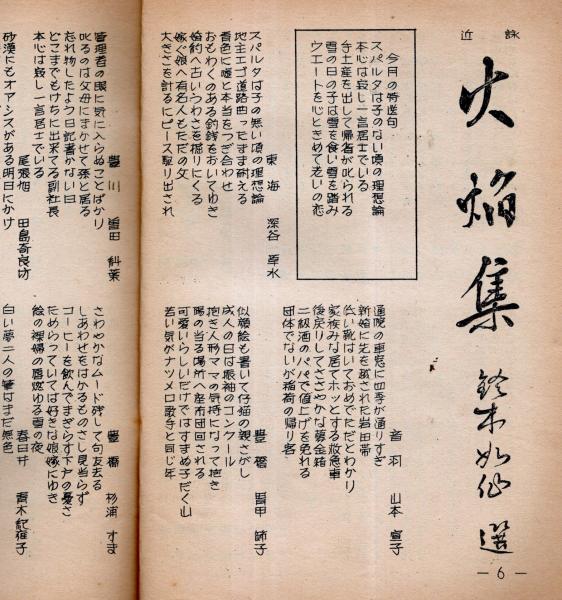 近詠
火焔集
鈴木如仙選
今月の特選句
スパルタは子のない頃の理想論
本心は寂し一言居士でいる
手土産を出して帰省が叱られる
雪の日の子は雪を食い雪を踏み
ウエートを心ときめて老いの恋
音羽 山本宣子
通院の車窓に四季が通りすぎ
新婚に先を越された岩田帯
低い靴はいておめでただとわかり
家族みな居てホッとする救急車
後戻りしてささやかな募金箱
二級酒のパパで値上げを免れる
団体でないが稲荷の帰り客
東海 深谷草水
スパルタは子の無い頃の理想論
地主エゴ道路曲ったまま耐える
音色に嘘と本当をつぎ合わせ
おもわくのある釣銭をおいてゆき
婚約へ古いうわさを掘りにくる
嫁ぐ娘へ有名人もただの父
大きさを計るにピース取り出され
豊橋 皆甲師子
似顔絵も書いて仔猫の親さがし
成人の日は振袖のコンクール
抱き人形ママの気持になって抱き
陽の当る場所へ座布団回される
可愛いらしいだけではすまぬ子だく山
若い気がナツメロ歌手と同じ年
豊川 皆田科葉
管理者の眼に気に入らぬことばかり
叱るのは父母にまかせて孫と居る
忘れ物したよう日記書かない日
どこまでもけちに出来てる副社長
本心は寂し一言居士でいる
尾張旭 田島奇良坊
砂漠にもオアシスがある明日にかけ
豊橋 杉浦すま
さわやかなムード残して句友去る
しあわせをはかるものさし見当らず
コーヒーを飲んでまぎらす下戸の憂さ
ためらっていては好きな娘嫁にゆき
絵の裸婦の唇燃ゆる雪の夜
春日井 青木紀雀子
白い夢二人の筆はまだ無色
―6―